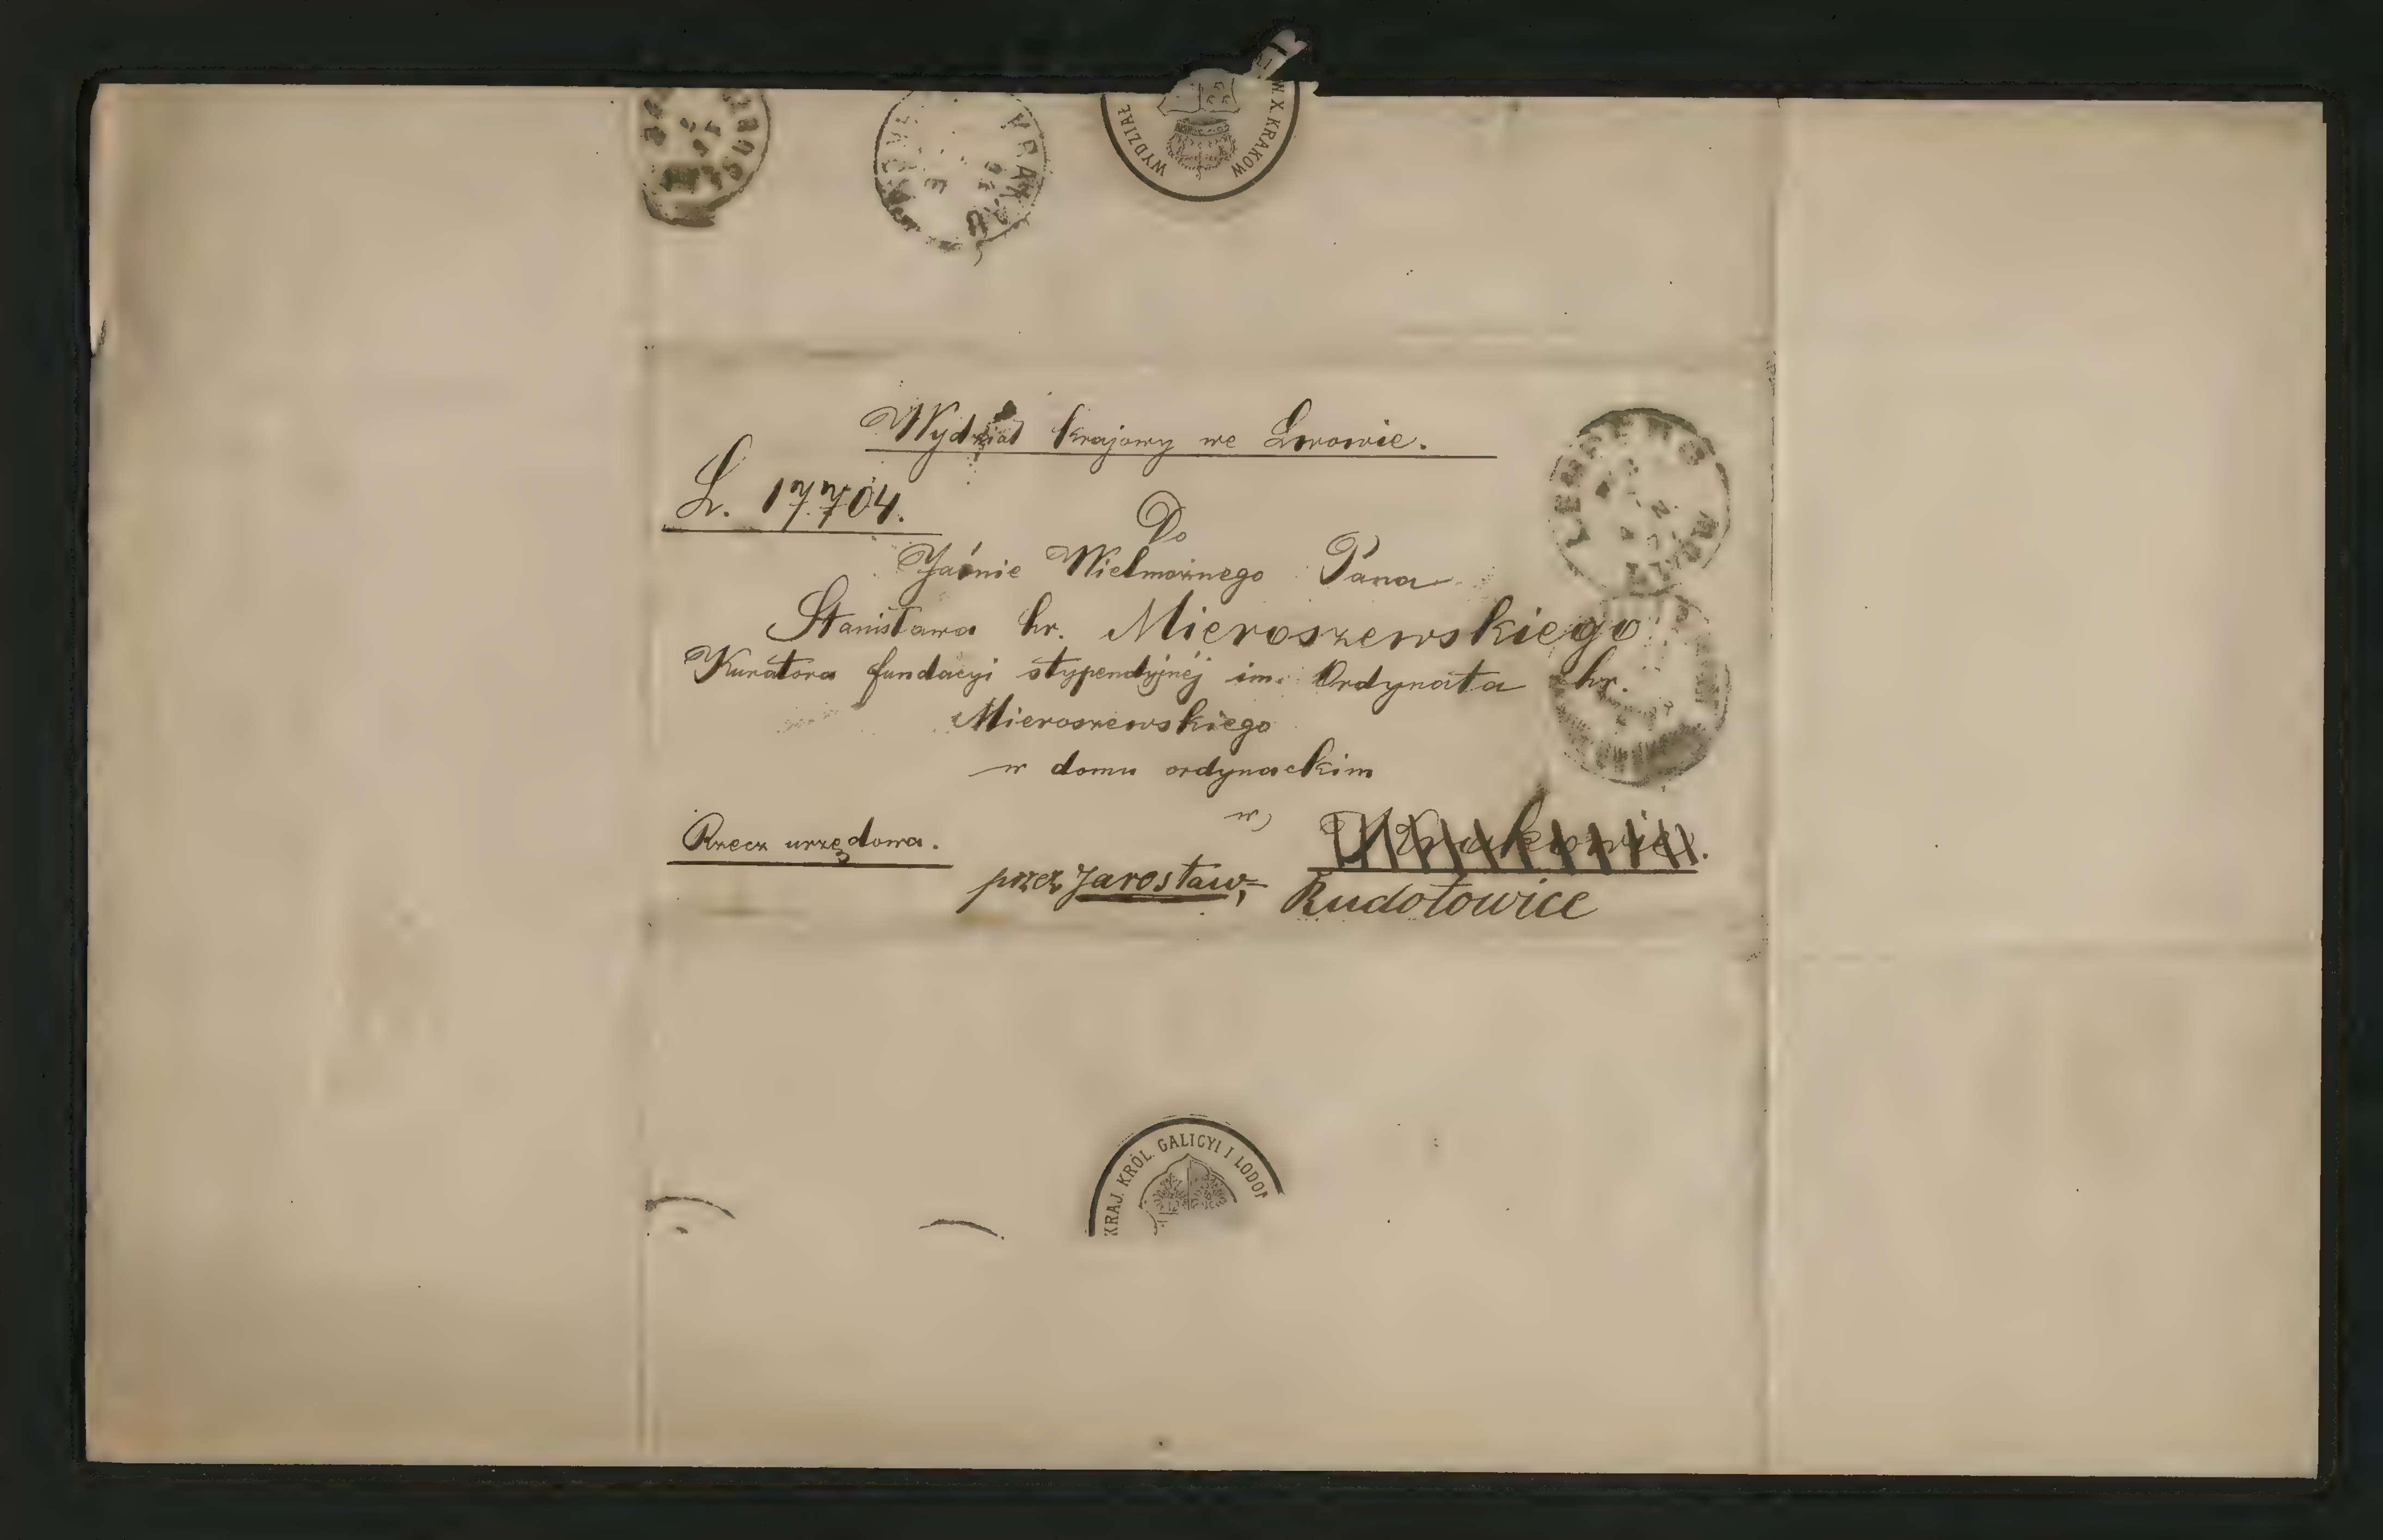 WYDZIAŁ W.X.KRAKOW
KRAKAU
Wydział krajowy we Lwowie.
L. 17704.
LEMBERG
Do
Jaśnie Wielmożnego Pana
Stanisława hr. Mieroszewskiego
Kuratora fundacyi stypendyjnéj im. Ordynata hr.
Mieroszewskiego
w domu ordynackim
w Krakowie.
Rzecz urzędowa.
przez Jarosław, Rudołowice
KRAJ. KRÓL. GALICYI I LODOM